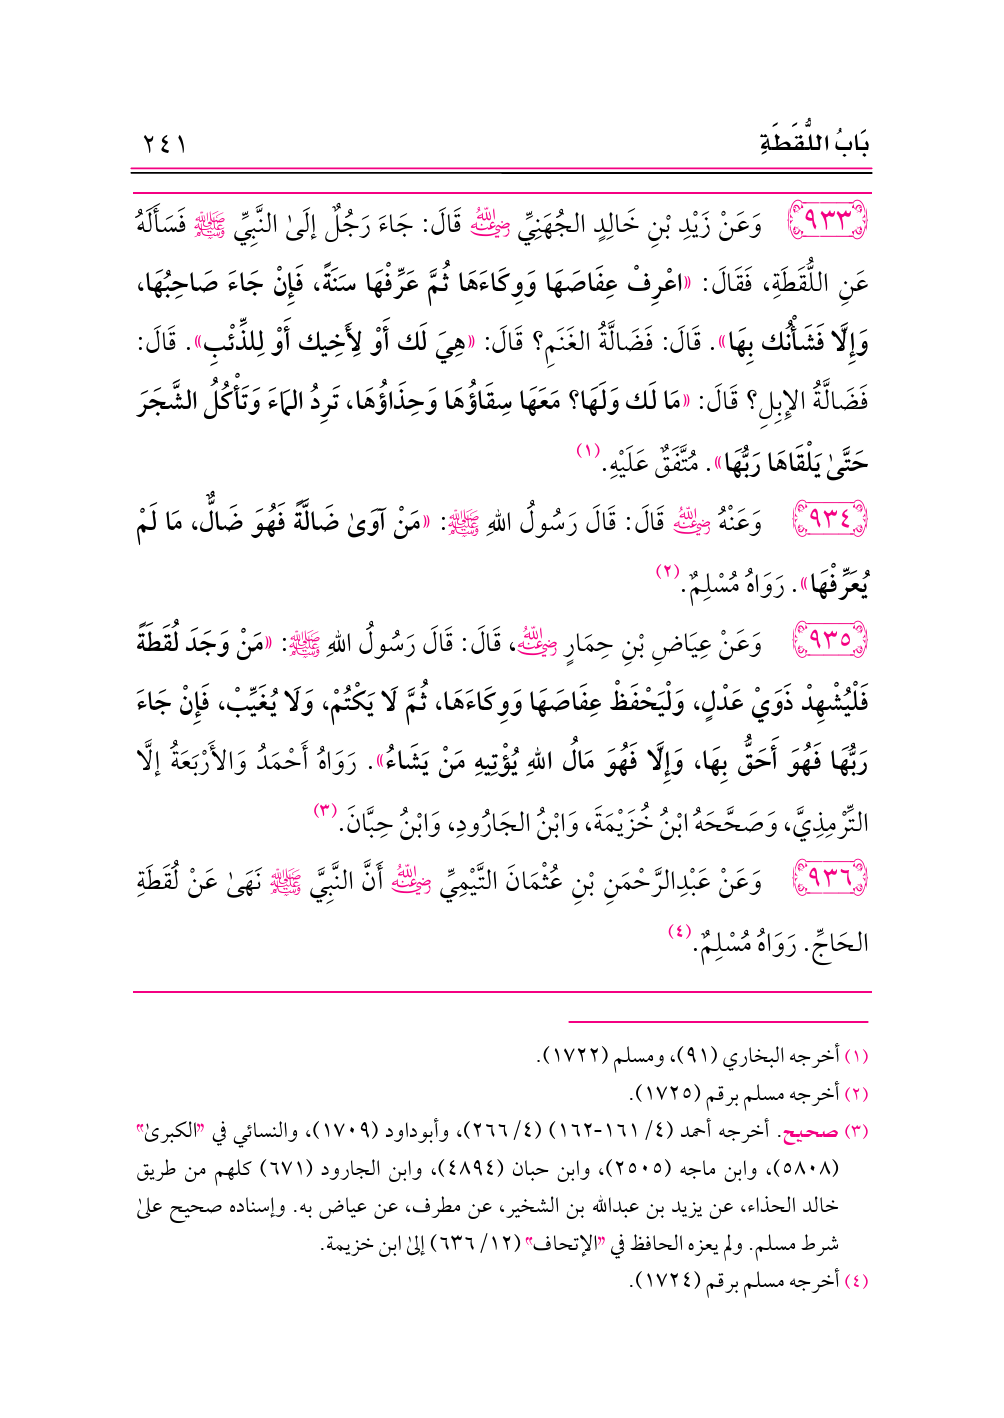 بَابُ اللُّقَطَةِ ٢٤١
٩٣٣ وَعَنْ زَيْدِ بْنِ خَالِدٍ الجُهَنِيِّ رضي الله عنه قَالَ: جَاءَ رَجُلٌ إلَىٰ النَّبِيِّ ﷺ فَسَأَلَهُ
عَنِ اللُّقَطَةِ، فَقَالَ: «اعْرِفْ عِفَاصَهَا وَوِكَاءَهَا ثُمَّ عَرِّفْهَا سَنَةً، فَإِنْ جَاءَ صَاحِبُهَا،
وَإِلَّا فَشَأْنُك بِهَا». قَالَ: فَضَالَّةُ الغَنَمِ؟ قَالَ: «هِيَ لَك أَوْ لِأَخِيك أَوْ لِلذِّئْبِ». قَالَ:
فَضَالَّةُ الإِبِلِ؟ قَالَ: «مَا لَك وَلَهَا؟ مَعَهَا سِقَاؤُهَا وَحِذَاؤُهَا، تَرِدُ المَاءَ وَتَأْكُلُ الشَّجَرَ
حَتَّىٰ يَلْقَاهَا رَبُّهَا». مُتَّفَقٌ عَلَيْهِ.(١)
٩٣٤ وَعَنْهُ رضي الله عنه قَالَ: قَالَ رَسُولُ اللهِ ﷺ: «مَنْ آوَىٰ ضَالَّةً فَهُوَ ضَالٌّ، مَا لَمْ
يُعَرِّفْهَا». رَوَاهُ مُسْلِمٌ.(٢)
٩٣٥ وَعَنْ عِيَاضِ بْنِ حِمَارٍ رضي الله عنه، قَالَ: قَالَ رَسُولُ اللهِ ﷺ: «مَنْ وَجَدَ لُقَطَةً
فَلْيُشْهِدْ ذَوَيْ عَدْلٍ، وَلْيَحْفَظْ عِفَاصَهَا وَوِكَاءَهَا، ثُمَّ لَا يَكْتُمْ، وَلَا يُغَيِّبْ، فَإِنْ جَاءَ
رَبُّهَا فَهُوَ أَحَقُّ بِهَا، وَإِلَّا فَهُوَ مَالُ اللهِ يُؤْتِيهِ مَنْ يَشَاءُ». رَوَاهُ أَحْمَدُ وَالأَرْبَعَةُ إلَّا
التِّرْمِذِيَّ، وَصَحَّحَهُ ابْنُ خُزَيْمَةَ، وَابْنُ الجَارُودِ، وَابْنُ حِبَّانَ.(٣)
٩٣٦ وَعَنْ عَبْدِالرَّحْمَنِ بْنِ عُثْمَانَ التَّيْمِيِّ رضي الله عنه أَنَّ النَّبِيَّ ﷺ نَهَىٰ عَنْ لُقَطَةِ
الحَاجِّ. رَوَاهُ مُسْلِمٌ.(٤)
(١) أخرجه البخاري (٩١)، ومسلم (١٧٢٢).
(٢) أخرجه مسلم برقم (١٧٢٥).
(٣) صحيح. أخرجه أحمد (٤/ ١٦١-١٦٢) (٤/ ٢٦٦)، وأبوداود (١٧٠٩)، والنسائي في "الكبرىٰ"
(٥٨٠٨)، وابن ماجه (٢٥٠٥)، وابن حبان (٤٨٩٤)، وابن الجارود (٦٧١) كلهم من طريق
خالد الحذاء، عن يزيد بن عبدالله بن الشخير، عن مطرف، عن عياض به. وإسناده صحيح علىٰ
شرط مسلم. ولم يعزه الحافظ في "الإتحاف" (١٢/ ٦٣٦) إلىٰ ابن خزيمة.
(٤) أخرجه مسلم برقم (١٧٢٤).